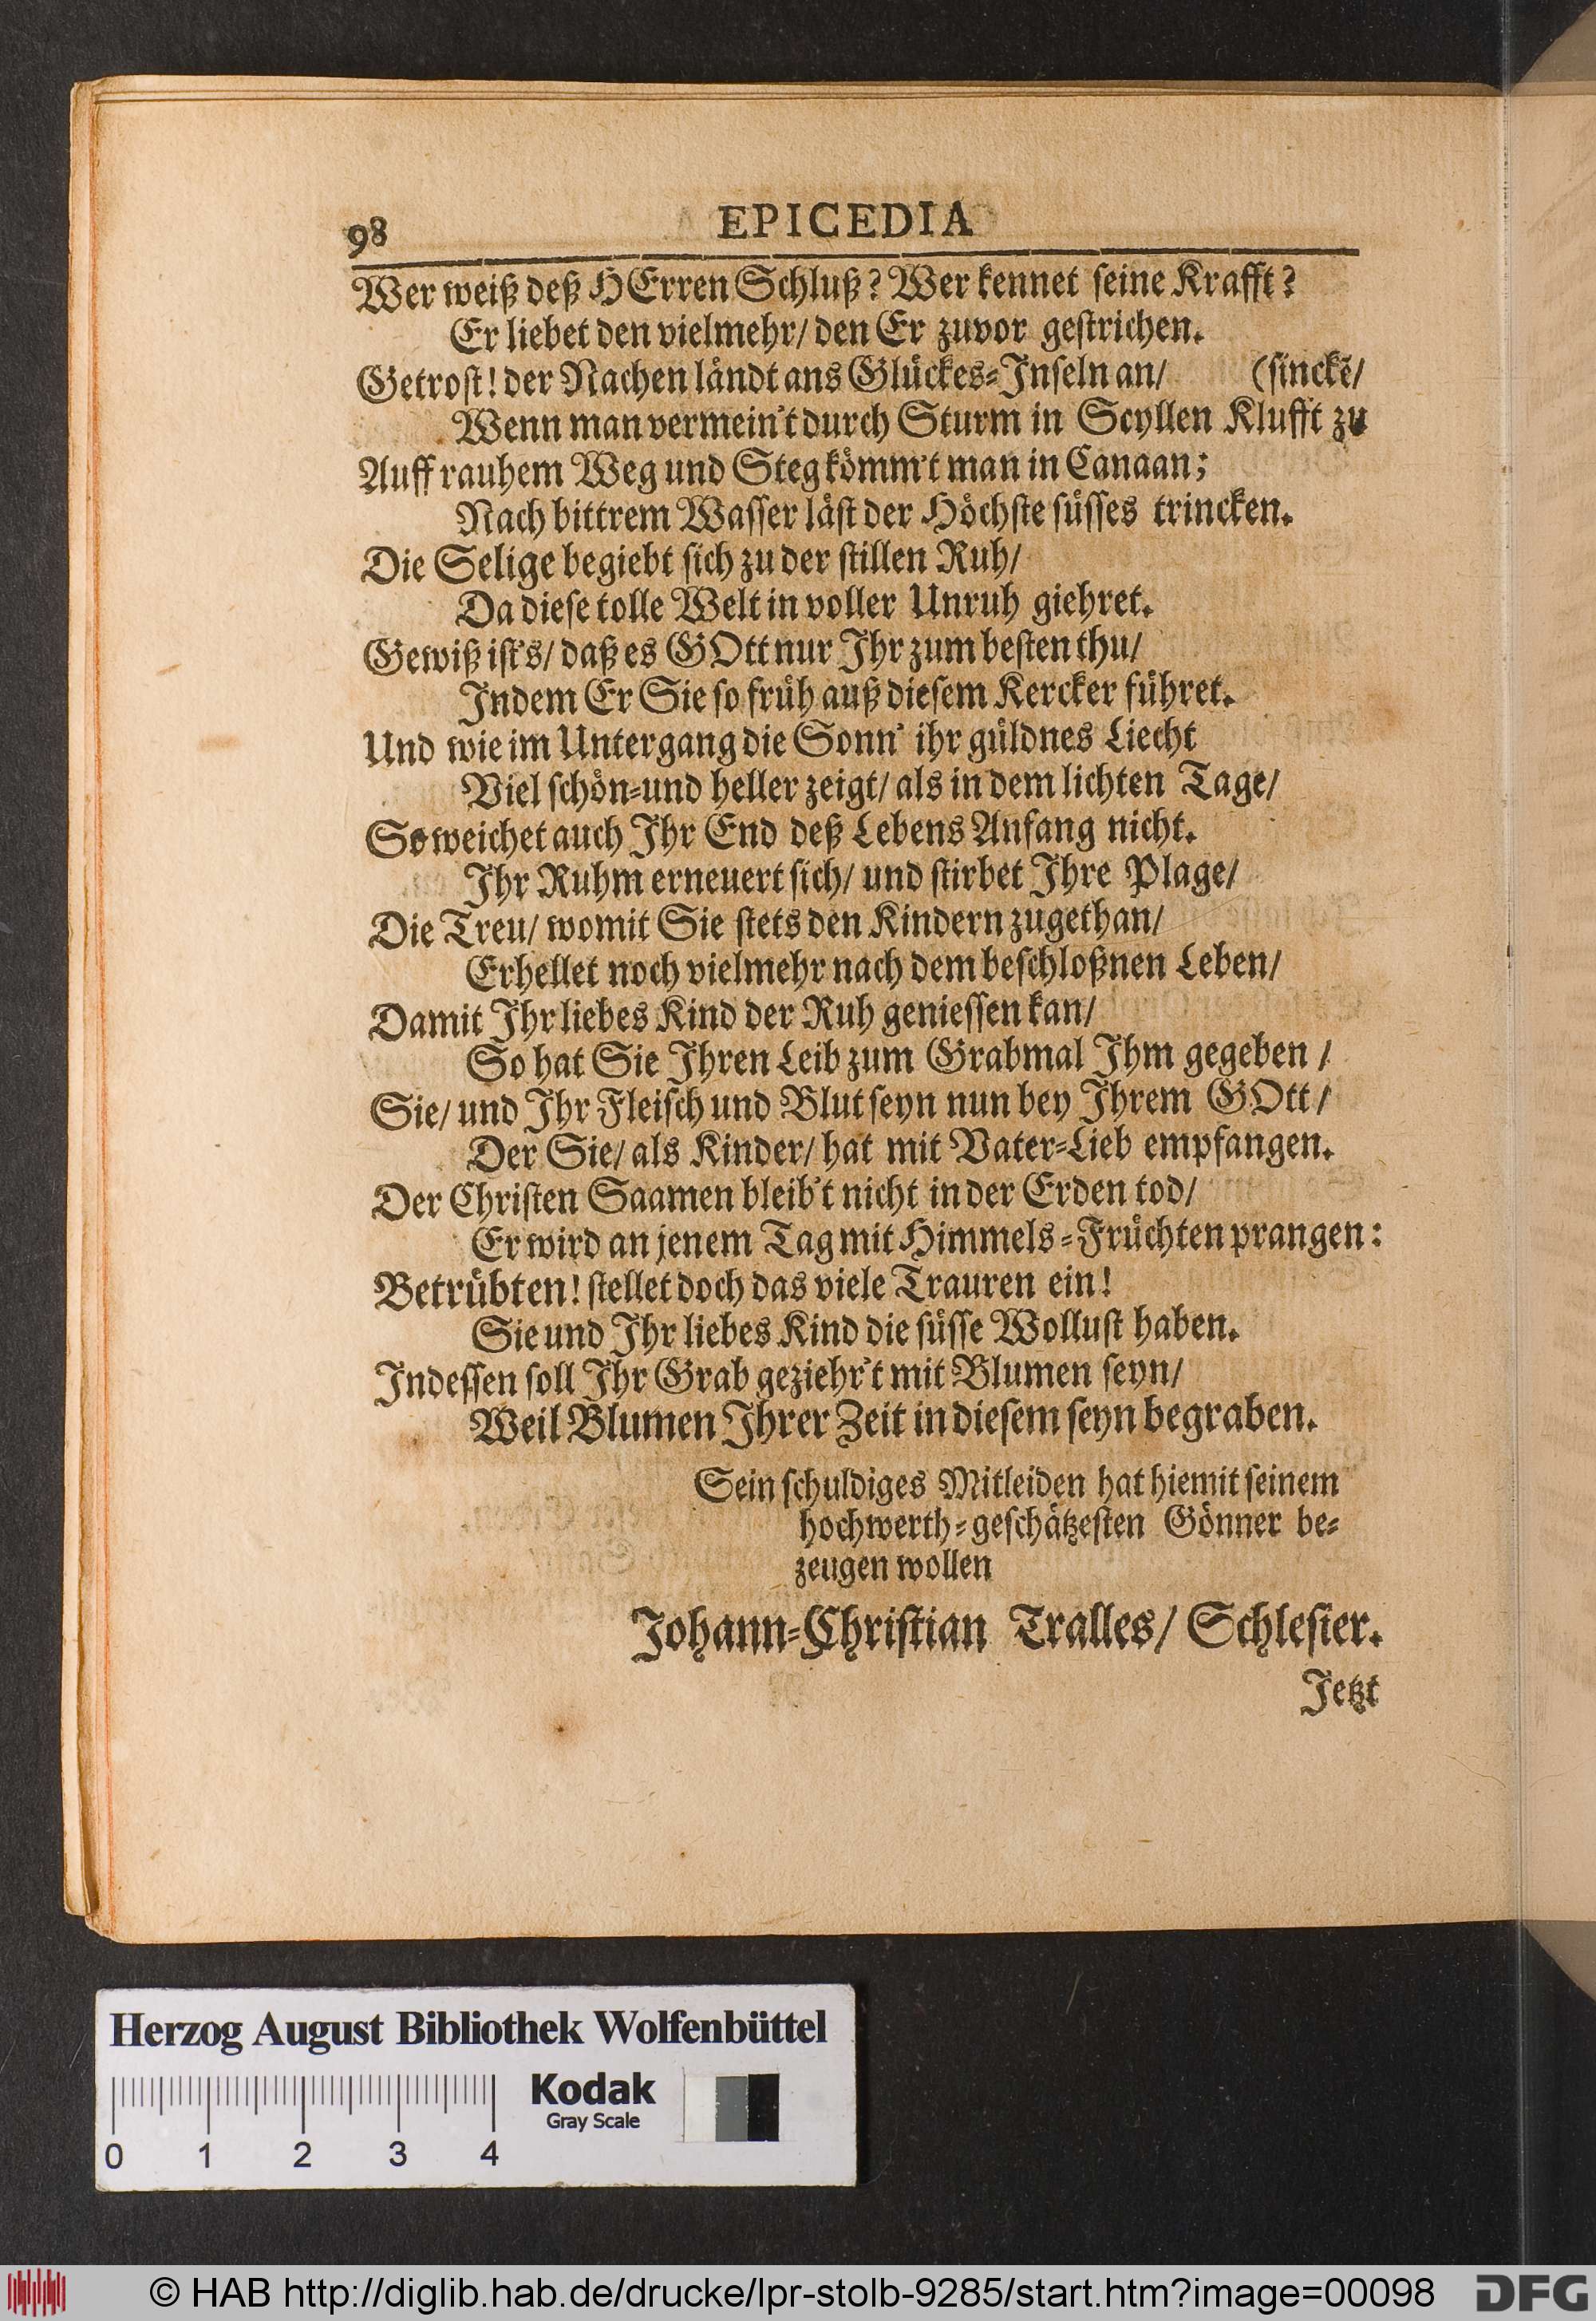 98 EPICEDIA
Wer weiß deß HErren Schluß? Wer kennet seine Krafft?
Er liebet den vielmehr/ den Er zuvor gestrichen.
Getrost! der Nachen ländt ans Glückes-Inseln an/ (sinckẽ/
Wenn man vermein't durch Sturm in Scyllen Klufft zu
Auff rauhem Weg und Steg kömm't man in Canaan;
Nach bittrem Wasser läst der Höchste süsses trincken.
Die Selige begiebt sich zu der stillen Ruh/
Da diese tolle Welt in voller Unruh giehret.
Gewiß ist's/ daß es GOtt nur Ihr zum besten thu/
Indem Er Sie so früh auß diesem Kercker führet.
Und wie im Untergang die Sonn' ihr güldnes Liecht
Viel schön-und heller zeigt/ als in dem lichten Tage/
So weichet auch Ihr End deß Lebens Anfang nicht.
Ihr Ruhm erneuert sich/ und stirbet Ihre Plage/
Die Treu/ womit Sie stets den Kindern zugethan/
Erhellet noch vielmehr nach dem beschloßnen Leben/
Damit Ihr liebes Kind der Ruh geniessen kan/
So hat Sie Ihren Leib zum Grabmal Ihm gegeben /
Sie/ und Ihr Fleisch und Blut seyn nun bey Ihrem GOtt /
Der Sie/ als Kinder/ hat mit Vater-Lieb empfangen.
Der Christen Saamen bleib't nicht in der Erden tod/
Er wird an jenem Tag mit Himmels-Früchten prangen:
Betrübten! stellet doch das viele Trauren ein!
Sie und Ihr liebes Kind die süsse Wollust haben.
Indessen soll Ihr Grab geziehr't mit Blumen seyn/
Weil Blumen Ihrer Zeit in diesem seyn begraben.
Sein schuldiges Mitleiden hat hiemit seinem
hochwerth-geschätzesten Gönner be-
zeugen wollen
Johann-Christian Tralles/ Schlesier.
Jetzt
Herzog August Bibliothek Wolfenbüttel
Kodak
Gray Scale
0 1 2 3 4
© HAB http://diglib.hab.de/drucke/lpr-stolb-9285/start.htm?image=00098 DFG